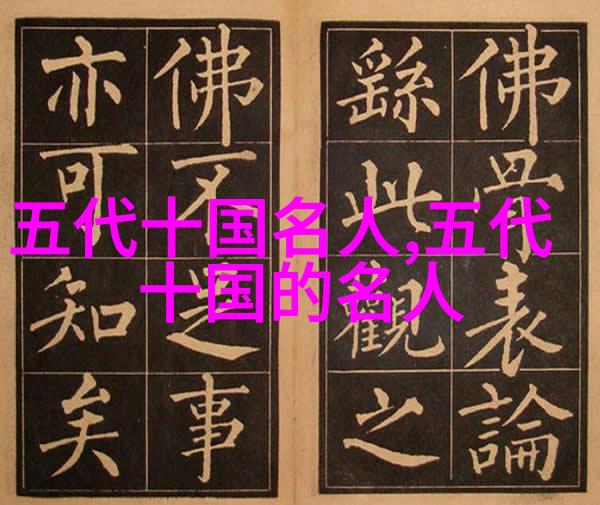 佛骨表論
繇此觀之
佛不足事
亦可知矣
五代十国名人,五代
十国的名人